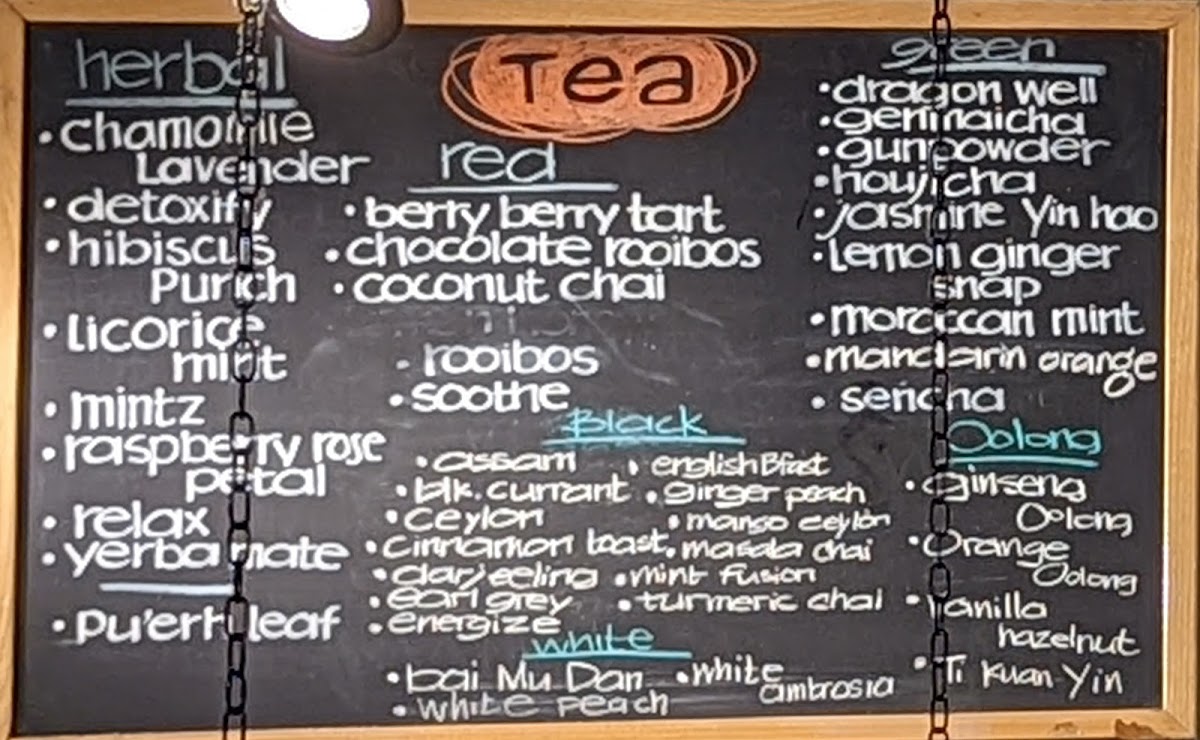 Tea
herbal
• chamomile
Lavender
• detoxify
• hibiscus
Punch
• licorice
mint
• mintz
• raspberry rose
petal
• relax
• yerba mate
• Pu'erh leaf
red
• berry berry tart
• chocolate rooibos
• coconut chai
• rooibos
• soothe
Black
• assam
• blk. currant
• ceylon
• cinnamon toast
• darjeeling
• earl grey
• energize
• english Bfast
• ginger peach
• mango ceylon
• masala chai
• mint fusion
• turmeric chai
white
• bai Mu Dan
• white peach
• white
ambrosia
green
• dragon well
• genmaicha
• gunpowder
• houjicha
• jasmine Yin hao
• Lemon ginger
snap
• moroccan mint
• mandarin orange
• sencha
Oolong
• ginseng
Oolong
• Orange
Oolong
• Vanilla
hazelnut
• Ti Kuan Yin